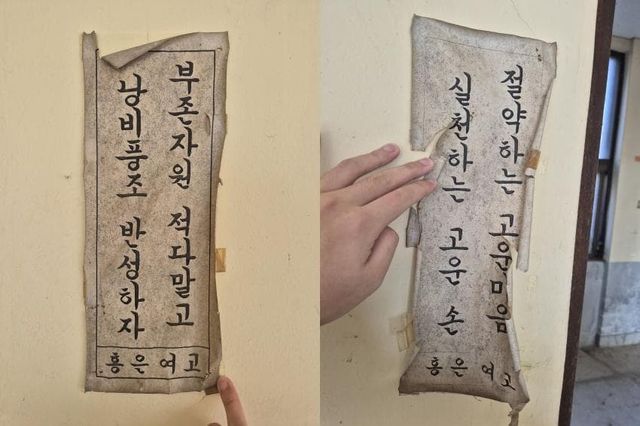 부존자원 적다말고
낭비풍조 반성하자
홍은여고
절약하는 고운마음
실천하는 고운 손
홍은여고